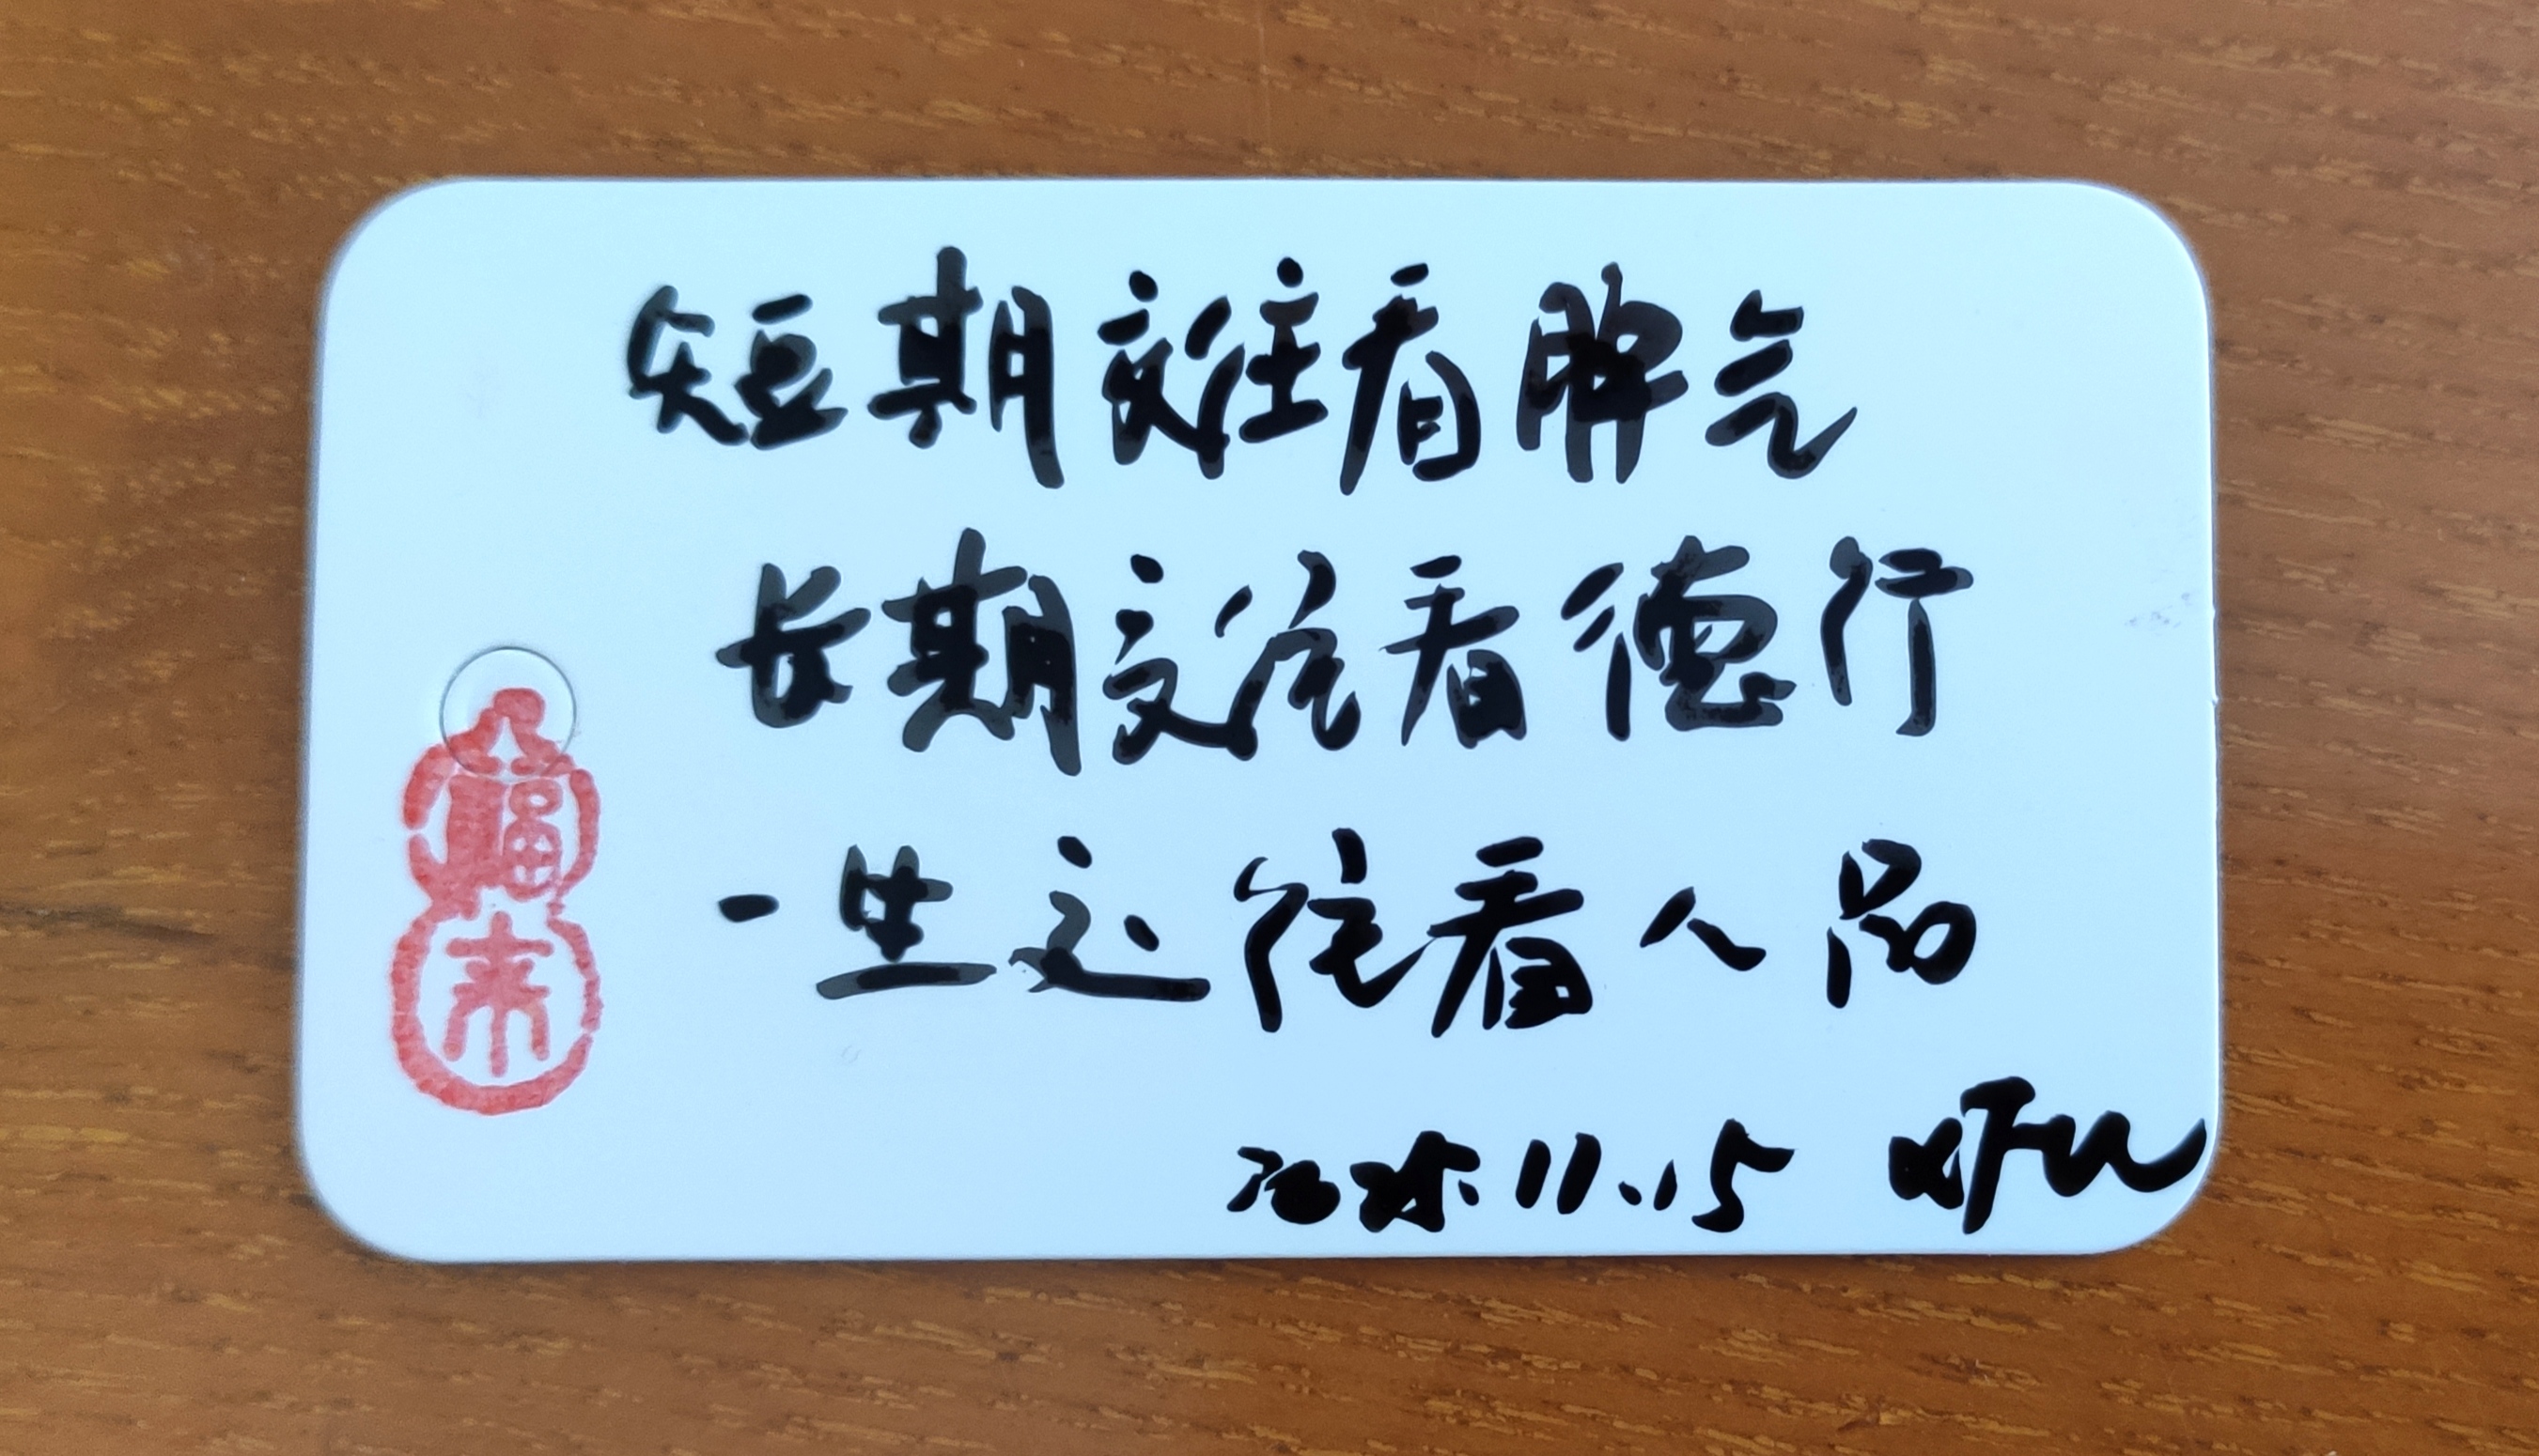 短期交往看脾气
长期交往看德行
一生交往看人品
2025.11.15
福来